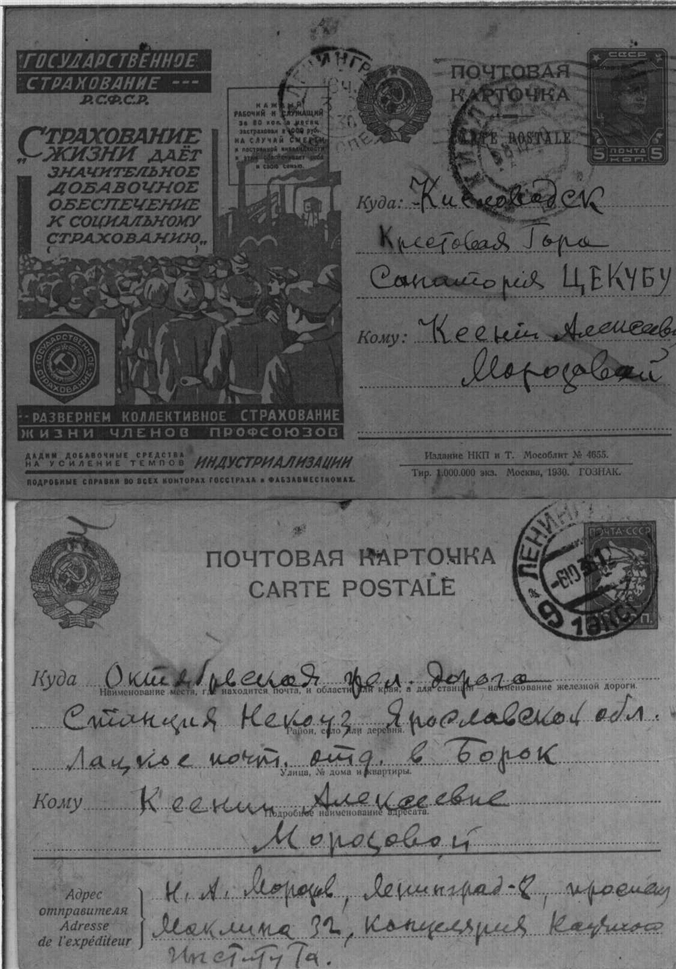 ГОСУДАРСТВЕННОЕ
СТРАХОВАНИЕ ---
Р.С.Ф.С.Р.
„СТРАХОВАНИЕ
ЖИЗНИ ДАЁТ
ЗНАЧИТЕЛЬНОЕ
ДОБАВОЧНОЕ
ОБЕСПЕЧЕНИЕ
К СОЦИАЛЬНОМУ
СТРАХОВАНИЮ„
РАБОЧИЙ И СЛУЖАЩИЙ
НА СЛУЧАЙ СМЕРТИ
ГОСУДАРСТВЕННОЕ
СТРАХОВАНИЕ
--РАЗВЕРНЕМ КОЛЛЕКТИВНОЕ СТРАХОВАНИЕ
ЖИЗНИ ЧЛЕНОВ ПРОФСОЮЗОВ
ДАДИМ ДОБАВОЧНЫЕ СРЕДСТВА
НА УСИЛЕНИЕ ТЕМПОВ ИНДУСТРИАЛИЗАЦИИ
ПОДРОБНЫЕ СПРАВКИ ВО ВСЕХ КОНТОРАХ ГОССТРАХА И ФАБЗАВМЕСТКОМАХ.
ЛЕНИНГР
ПОЧТОВАЯ
КАРТОЧКА
POSTALE
5 ПОЧТА 5
КОП.
Куда: Кисловодск
Крестовая Гора
Санатория ЦЕКУБУ
Кому: Ксении Алексеев
Морозовой
Издание НКП и Т. Мособлит № 4655.
Тир. 1.000.000 экз. Москва, 1930. ГОЗНАК.
ПОЧТОВАЯ КАРТОЧКА
CARTE POSTALE
ПОЧТА СССР
ЛЕНИНГ
Куда Октябрьская жел. дорога
Наименование места, где находится почта, и области или края, а для станции — наименование железной дороги.
Станция Некоуз Ярославской обл.
Район, село или деревня.
Лацкое почт. отд. в Борок
Улица, № дома и квартиры.
Кому Ксении Алексеевне
Подробное наименование адресата.
Морозовой
Адрес отправителя
Adresse de l'expéditeur
Н. А. Морозов, Ленинград-8, проспект
Маклина 32, Канцелярия Научного
Института.